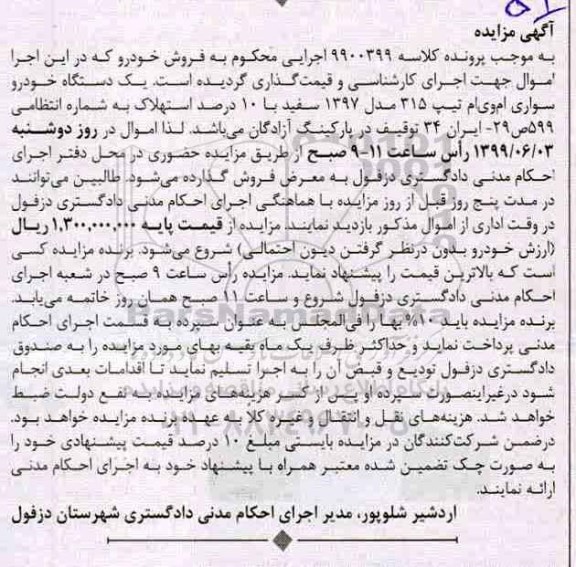 آگهی مزایده
به موجب پرونده کلاسه ۹۹۰۰۳۹۹ اجرایی محکوم به فروش خودرو که در این اجرا
اموال جهت اجرای کارشناسی و قیمت‌گذاری گردیده است. یک دستگاه خودرو
سواری ام‌وی‌ام تیپ ۳۱۵ مدل ۱۳۹۷ سفید با ۱۰ درصد استهلاک به شماره انتظامی
۵۹۹ص۲۹- ایران ۳۴ توقیف در پارکینگ آزادگان می‌باشد. لذا اموال در روز دوشنبه
۱۳۹۹/۰۶/۰۳ رأس ساعت ۱۱-۹ صبح از طریق مزایده حضوری در محل دفتر اجرای
احکام مدنی دادگستری دزفول به معرض فروش گذارده می‌شود. طالبین می‌توانند
در مدت پنج روز قبل از روز مزایده با هماهنگی اجرای احکام مدنی دادگستری دزفول
در وقت اداری از اموال مذکور بازدید نمایند. مزایده از قیمت پایه ۱,۳۰۰,۰۰۰,۰۰۰ ریال
(ارزش خودرو بدون درنظر گرفتن دیون احتمالی) شروع می‌شود. برنده مزایده کسی
است که بالاترین قیمت را پیشنهاد نماید. مزایده رأس ساعت ۹ صبح در شعبه اجرای
احکام مدنی دادگستری دزفول شروع و ساعت ۱۱ صبح همان روز خاتمه می‌یابد.
برنده مزایده باید ۱۰% بها را فی‌المجلس به عنوان سپرده به قسمت اجرای احکام
مدنی پرداخت نماید و حداکثر ظرف یک ماه بقیه بهای مورد مزایده را به صندوق
دادگستری دزفول تودیع و قبض آن را به اجرا تسلیم نماید تا اقدامات بعدی انجام
شود درغیراینصورت سپرده او پس از کسر هزینه‌های مزایده به نفع دولت ضبط
خواهد شد. هزینه‌های نقل و انتقال و غیره کلا به عهده برنده مزایده خواهد بود.
درضمن شرکت‌کنندگان در مزایده بایستی مبلغ ۱۰ درصد قیمت پیشنهادی خود را
به صورت چک تضمین شده معتبر همراه با پیشنهاد خود به اجرای احکام مدنی
ارائه نمایند.
اردشیر شلوپور، مدیر اجرای احکام مدنی دادگستری شهرستان دزفول